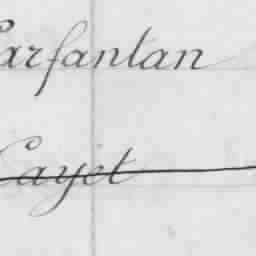 Carfantan
Cayet